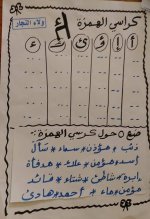 كراسي الهمزة
ء
ولاء النجار
أ إ ؤ ئ ء
ضع ○ حول كرسي الهمزة :
ذئب * مؤذن * سماء * سأل
أسد * مؤمن * علاء * مدفأة
شاطئ * شتاء * فائد
ماء * أحمد * هادئ